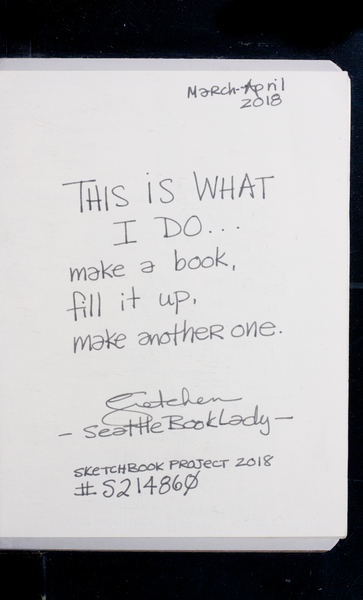 March-April
2018
THIS IS WHAT
I DO...
make a book,
fill it up,
make another one.
Gretchen
- Seattle Book Lady -
SKETCHBOOK PROJECT 2018
# S214860